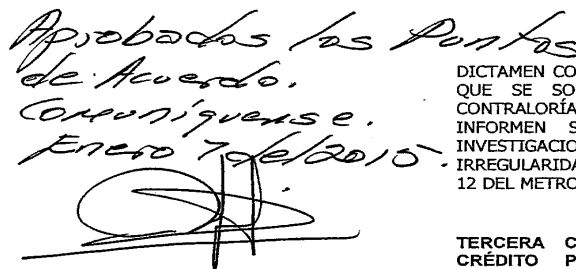 Aprobados los Puntos
de Acuerdo.
Comuníquense.
Enero 7 del 2015.
DICTAMEN CO
QUE SE SO
CONTRALORÍA
INFORMEN S
INVESTIGACIO
IRREGULARIDA
12 DEL METRO
TERCERA C
CRÉDITO P